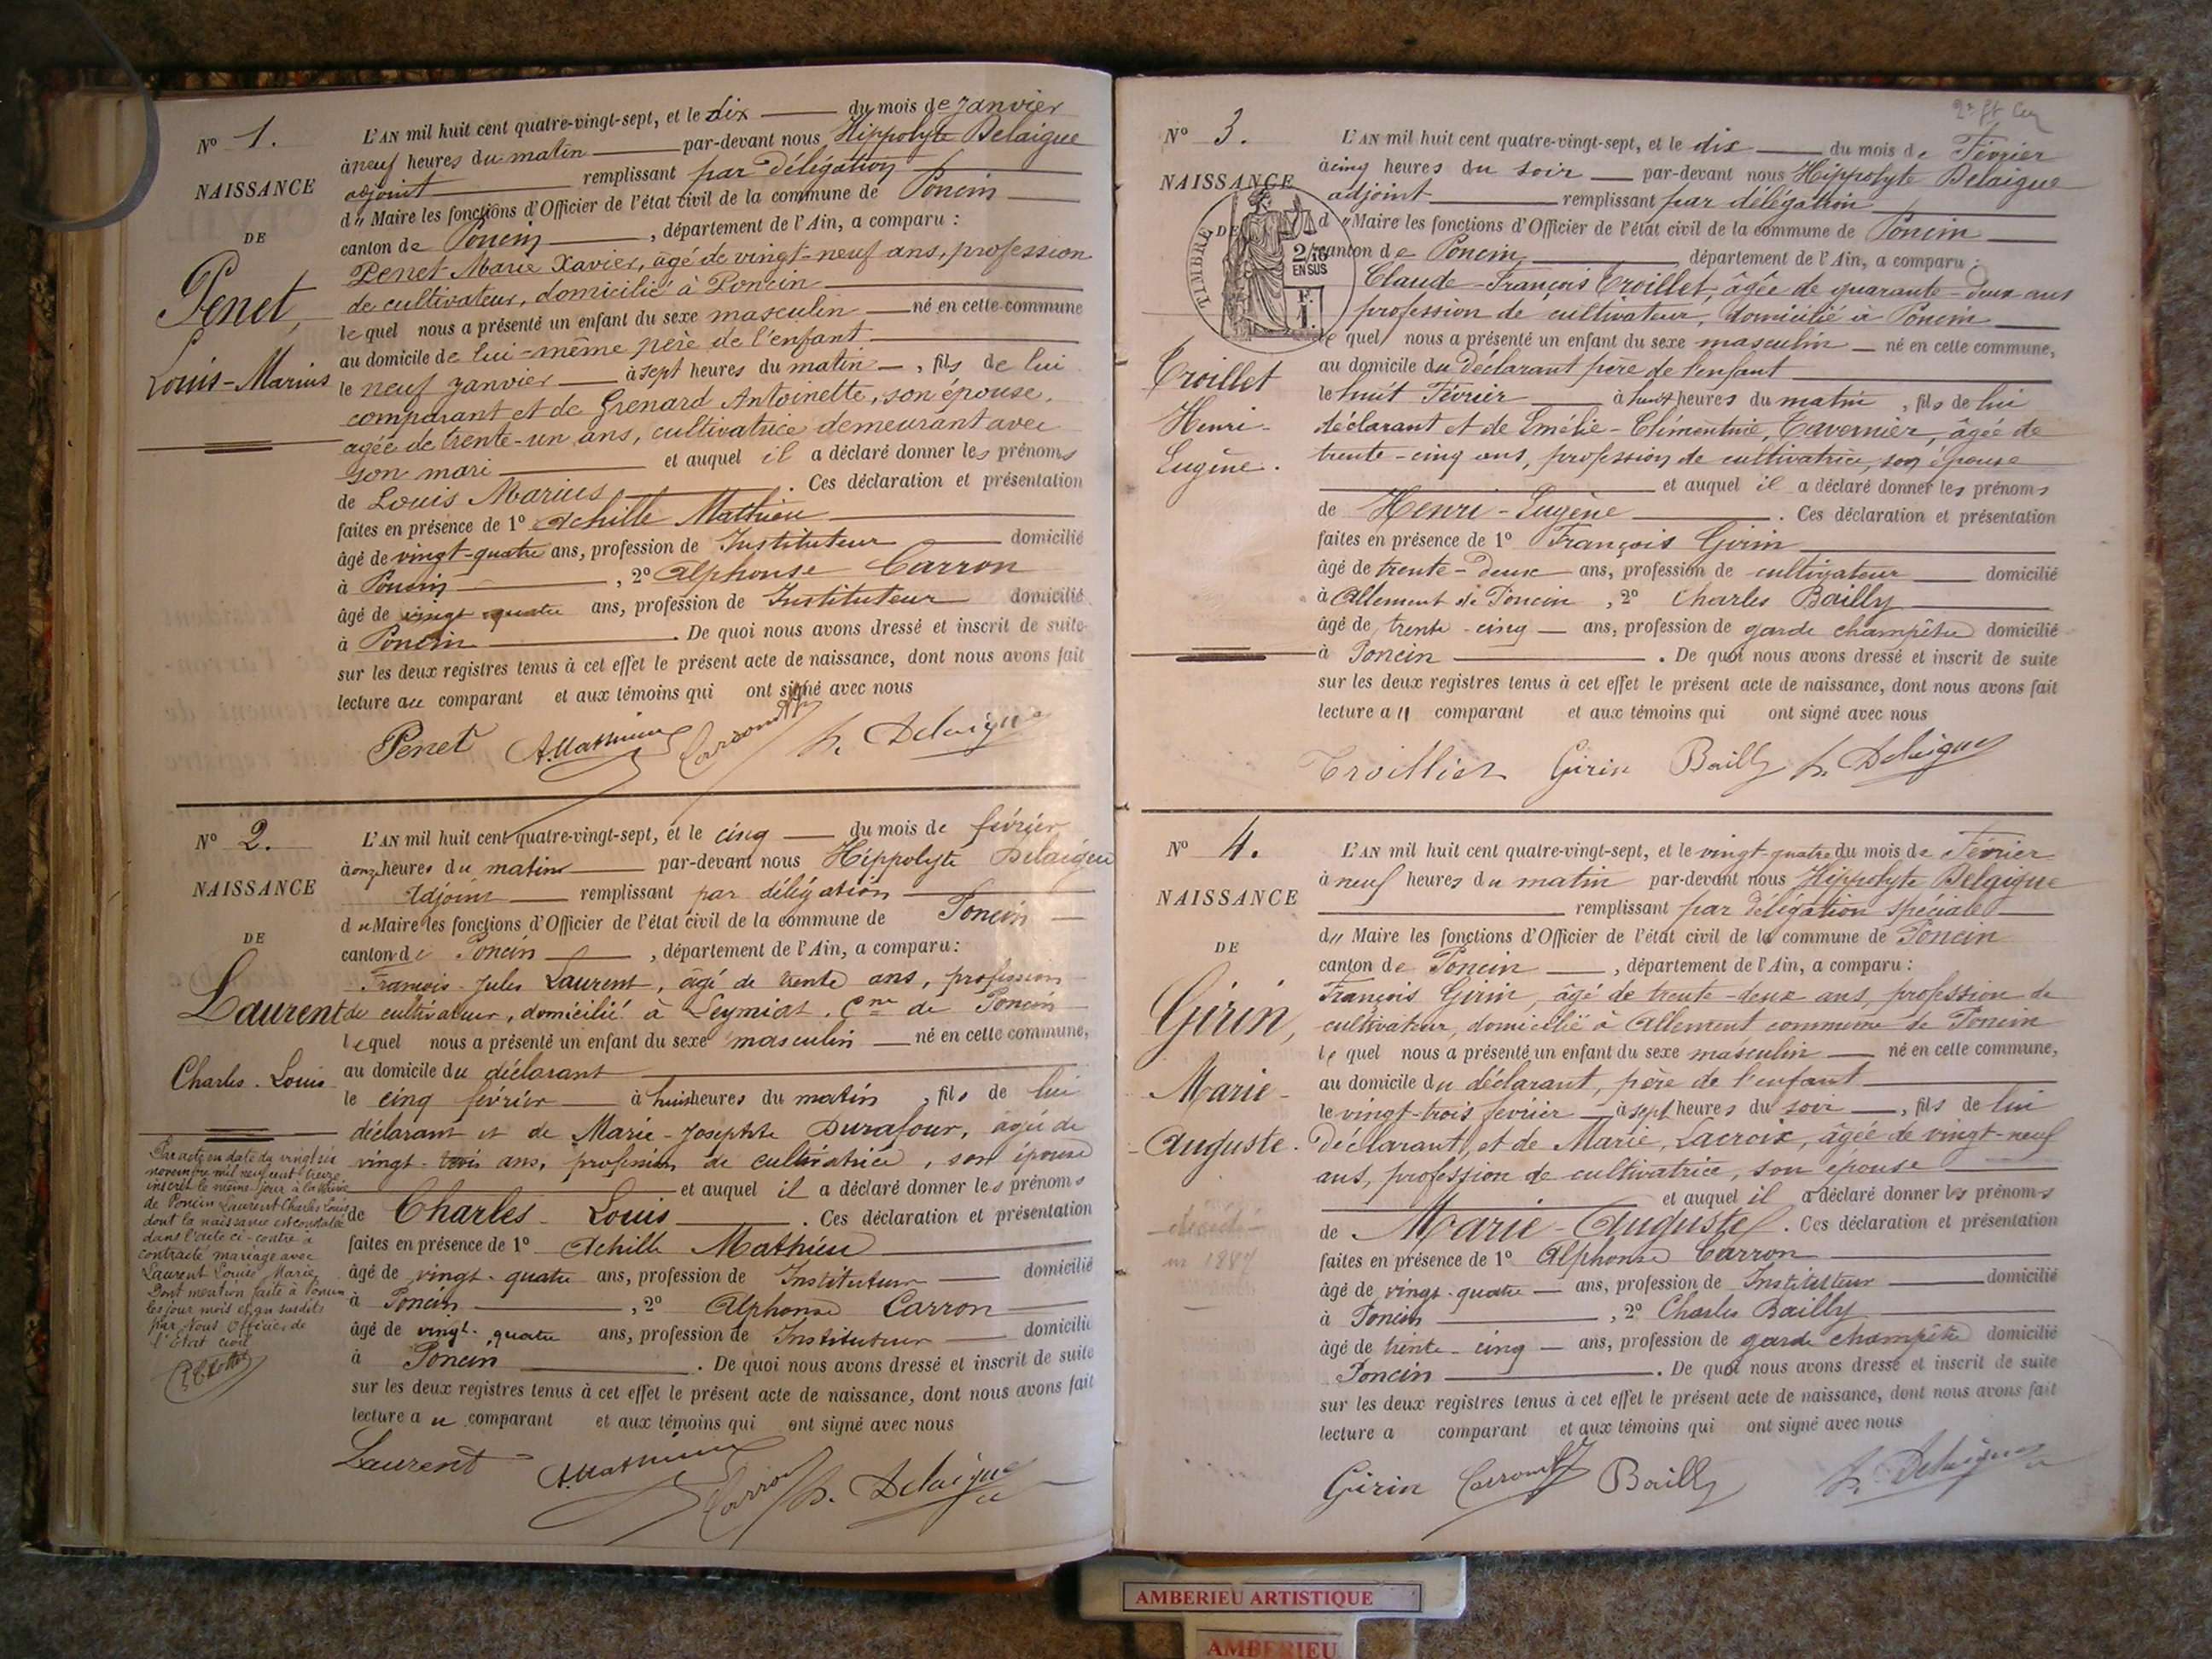 N° 1.
NAISSANCE
DE
Penet,
Louis-Marius
L'AN mil huit cent quatre-vingt-sept, et le dix du mois de janvier
à neuf heures du matin par-devant nous Hippolyte Delaigue
adjoint remplissant par délégation
du Maire les fonctions d'Officier de l'état civil de la commune de Poncin
canton de Poncin, département de l'Ain, a comparu :
Penet Marie Xavier, âgé de vingt-neuf ans, profession
de cultivateur, domicilié à Poncin
lequel nous a présenté un enfant du sexe masculin né en cette commune
au domicile de lui-même père de l'enfant
le neuf janvier à sept heures du matin, fils de lui
comparant et de Grenard Antoinette, son épouse,
agée de trente-un ans, cultivatrice demeurant avec
son mari et auquel il a déclaré donner les prénoms
de Louis Marius. Ces déclaration et présentation
faites en présence de 1° Achille Mathieu
âgé de vingt-quatre ans, profession de Instituteur domicilié
à Poncin, 2° Alphonse Carron
âgé de vingt quatre ans, profession de Instituteur domicilié
à Poncin. De quoi nous avons dressé et inscrit de suite
sur les deux registres tenus à cet effet le présent acte de naissance, dont nous avons fait
lecture au comparant et aux témoins qui ont signé avec nous
Penet A. Mathieu Carron h. Delaigue
N° 2.
NAISSANCE
DE
Laurent
Charles. Louis
L'AN mil huit cent quatre-vingt-sept, et le cinq du mois de février
à onze heures du matin par-devant nous Hippolyte Delaigue
Adjoint remplissant par délégation
du Maire les fonctions d'Officier de l'état civil de la commune de Poncin
canton de Poncin, département de l'Ain, a comparu :
François-Jules Laurent, âgé de trente ans, profession
de cultivateur, domicilié à Leymiat. Cne de Poncin
lequel nous a présenté un enfant du sexe masculin né en cette commune,
au domicile du déclarant
le cinq février à huit heures du matin, fils de lui
déclarant et de Marie-Josephte Durafour, agée de
vingt-trois ans, profession de cultivatrice, son épouse
et auquel il a déclaré donner les prénoms
de Charles-Louis. Ces déclaration et présentation
faites en présence de 1° Achille Mathieu
âgé de vingt-quatre ans, profession de Instituteur domicilié
à Poncin, 2° Alphonse Carron
âgé de vingt-quatre ans, profession de Instituteur domicilié
à Poncin. De quoi nous avons dressé et inscrit de suite
sur les deux registres tenus à cet effet le présent acte de naissance, dont nous avons fait
lecture au comparant et aux témoins qui ont signé avec nous
Laurent A. Mathieu Carron h. Delaigue
Par acte en date du vingt six
novembre mil neuf cent treize
inscrit le même jour à la Mairie
de Poncin Laurent Charles Louis
dont la naissance est constatée
dans l'acte ci-contre a
contracté mariage avec
Laurent Louise Marie
Dont mention faite à Poncin
les jour mois et an susdits
par Nous Officier de
l'Etat civil
N° 3.
NAISSANCE
DE
TIMBRE
2/10
EN SUS
F.
1.
Troillet
Henri-
Eugène.
L'AN mil huit cent quatre-vingt-sept, et le dix du mois de Février
à cinq heures du soir par-devant nous Hippolyte Delaigue
adjoint remplissant par délégation
du Maire les fonctions d'Officier de l'état civil de la commune de Poncin
canton de Poncin, département de l'Ain, a comparu :
Claude-François Troillet, âgée de quarante-deux ans
profession de cultivateur, domicilié à Poncin
lequel nous a présenté un enfant du sexe masculin né en cette commune,
au domicile du déclarant père de l'enfant
le huit Février à huit heures du matin, fils de lui
déclarant et de Emélie-Clémentine, Tavernier, âgée de
trente-cinq ans, profession de cultivatrice, son épouse
et auquel il a déclaré donner les prénoms
de Henri-Eugène. Ces déclaration et présentation
faites en présence de 1° François Girin
âgé de trente-deux ans, profession de cultivateur domicilié
à Allement de Poncin, 2° Charles Bailly
âgé de trente-cinq ans, profession de garde champêtre domicilié
à Poncin. De quoi nous avons dressé et inscrit de suite
sur les deux registres tenus à cet effet le présent acte de naissance, dont nous avons fait
lecture au comparant et aux témoins qui ont signé avec nous
Troilliet Girin Bailly h. Delaigue
N° 4.
NAISSANCE
DE
Girin,
Marie-
Auguste.
en 1887
L'AN mil huit cent quatre-vingt-sept, et le vingt-quatre du mois de Février
à neuf heures du matin par-devant nous Hippolyte Delaigue
remplissant par délégation spéciale
du Maire les fonctions d'Officier de l'état civil de la commune de Poncin
canton de Poncin, département de l'Ain, a comparu :
François Girin, âgé de trente-deux ans, profession de
cultivateur, domicilié à Allement commune de Poncin
lequel nous a présenté un enfant du sexe masculin né en cette commune,
au domicile du déclarant, père de l'enfant
le vingt-trois février à sept heures du soir, fils de lui
déclarant, et de Marie, Lacroix, âgée de vingt-neuf
ans, profession de cultivatrice, son épouse
et auquel il a déclaré donner les prénoms
de Marie-Auguste. Ces déclaration et présentation
faites en présence de 1° Alphonse Carron
âgé de vingt-quatre ans, profession de Instituteur domicilié
à Poncin, 2° Charles Bailly
âgé de trente-cinq ans, profession de garde champêtre domicilié
Poncin. De quoi nous avons dressé et inscrit de suite
sur les deux registres tenus à cet effet le présent acte de naissance, dont nous avons fait
lecture a comparant et aux témoins qui ont signé avec nous
Girin Carron Bailly h. Delaigue
AMBERIEU ARTISTIQUE
AMBERIEU